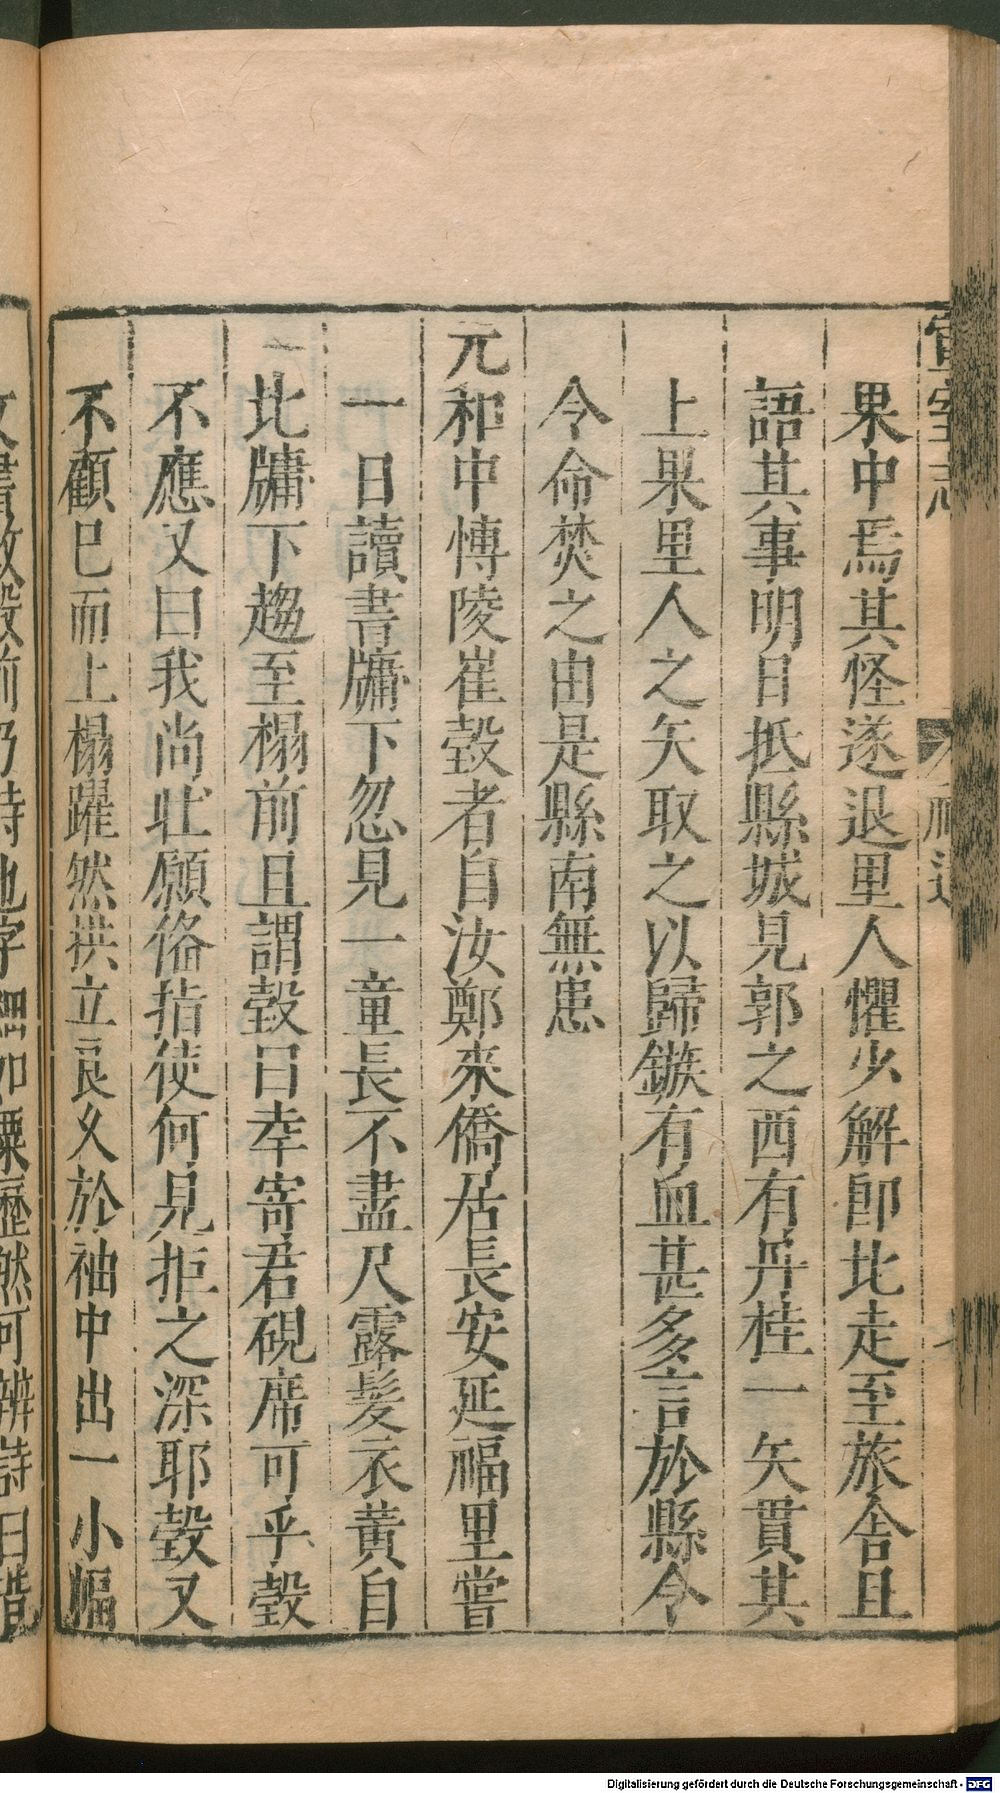 宣室志
果中焉其怪遂退里人懼少解卽比走至旅舍且
語其事明日抵縣城見郭之西有丹桂一矢貫其
上果里人之矢取之以歸鏃有血甚多言於縣令
令命焚之由是縣南無患
元和中愽陵崔㲄者自汝鄭來僑居長安延福里嘗
一日讀書牗下忽見一童長不盡尺露髮衣黃自
比牗下趨至榻前且謂㲄曰幸寄君硯席可乎㲄
不應又曰我尚壯願俻指使何見拒之深耶㲄又
不顧已而上榻躍然拱立良久於袖中出一小幅
Digitalisierung gefördert durch die Deutsche Forschungsgemeinschaft - DFG